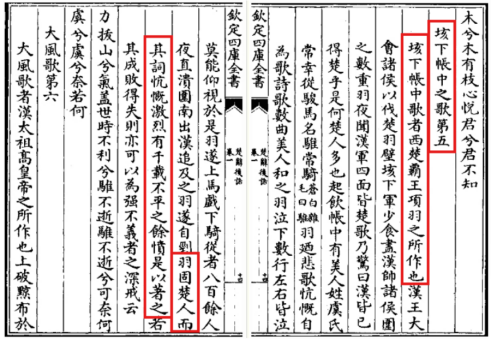 木兮木有枝心悦君兮君不知
垓下帳中之歌第五
垓下帳中歌者西楚霸王項羽之所作也漢王大
會諸侯以伐楚羽壁垓下軍少食盡漢帥諸侯圍
之數重羽夜聞漢軍四面皆楚歌乃驚曰漢皆已
得楚乎是何楚人多也起飲帳中有美人姓虞氏
常幸從駿馬名騅常騎蒼白雜毛曰騅羽廼悲歌忼慨自
為歌詩歌數曲美人和之羽泣下數行左右皆泣
欽定四庫全書
楚辭後語
卷一
欽定四庫全書
楚辭後語
卷一
莫能仰視於是羽遂上馬戲下騎從者八百餘人
夜直潰圍南出漢追及之羽遂自剄羽固楚人而
其詞忼慨激烈有千載不平之餘憤是以著之若
其成敗得失則亦可以為强不義者之深戒云
力拔山兮氣蓋世時不利兮騅不逝騅不逝兮可奈何
虞兮虞兮奈若何
大風歌第六
大風歌者漢太祖髙皇帝之所作也上破黥布於